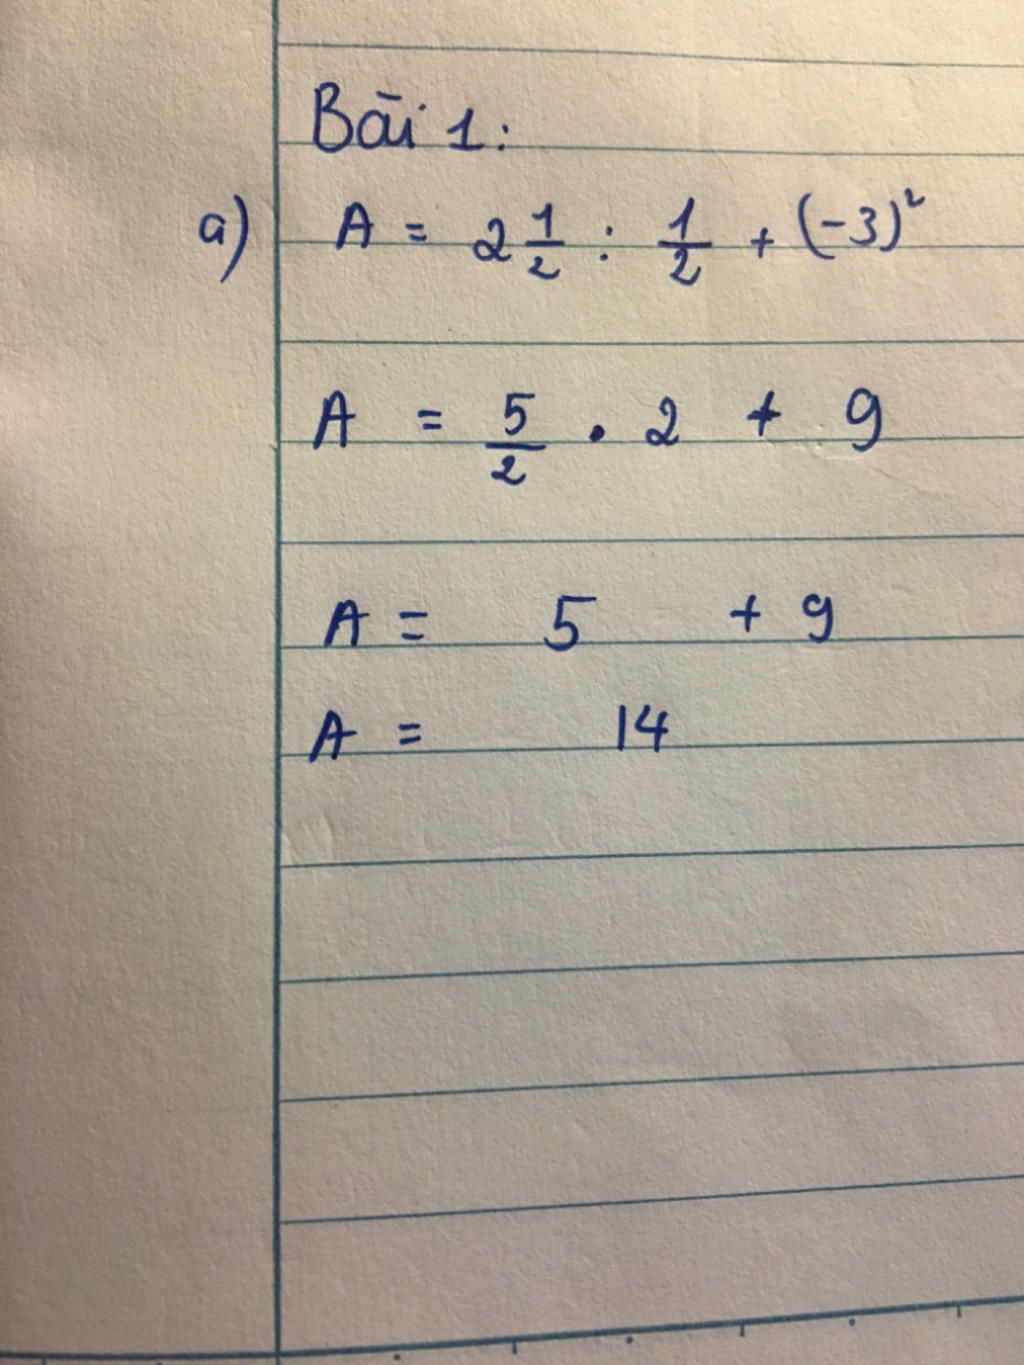 Bài 1:
a) A = 2 1/2 : 1/2 + (-3)²
A = 5/2 . 2 + 9
A = 5 + 9
A = 14